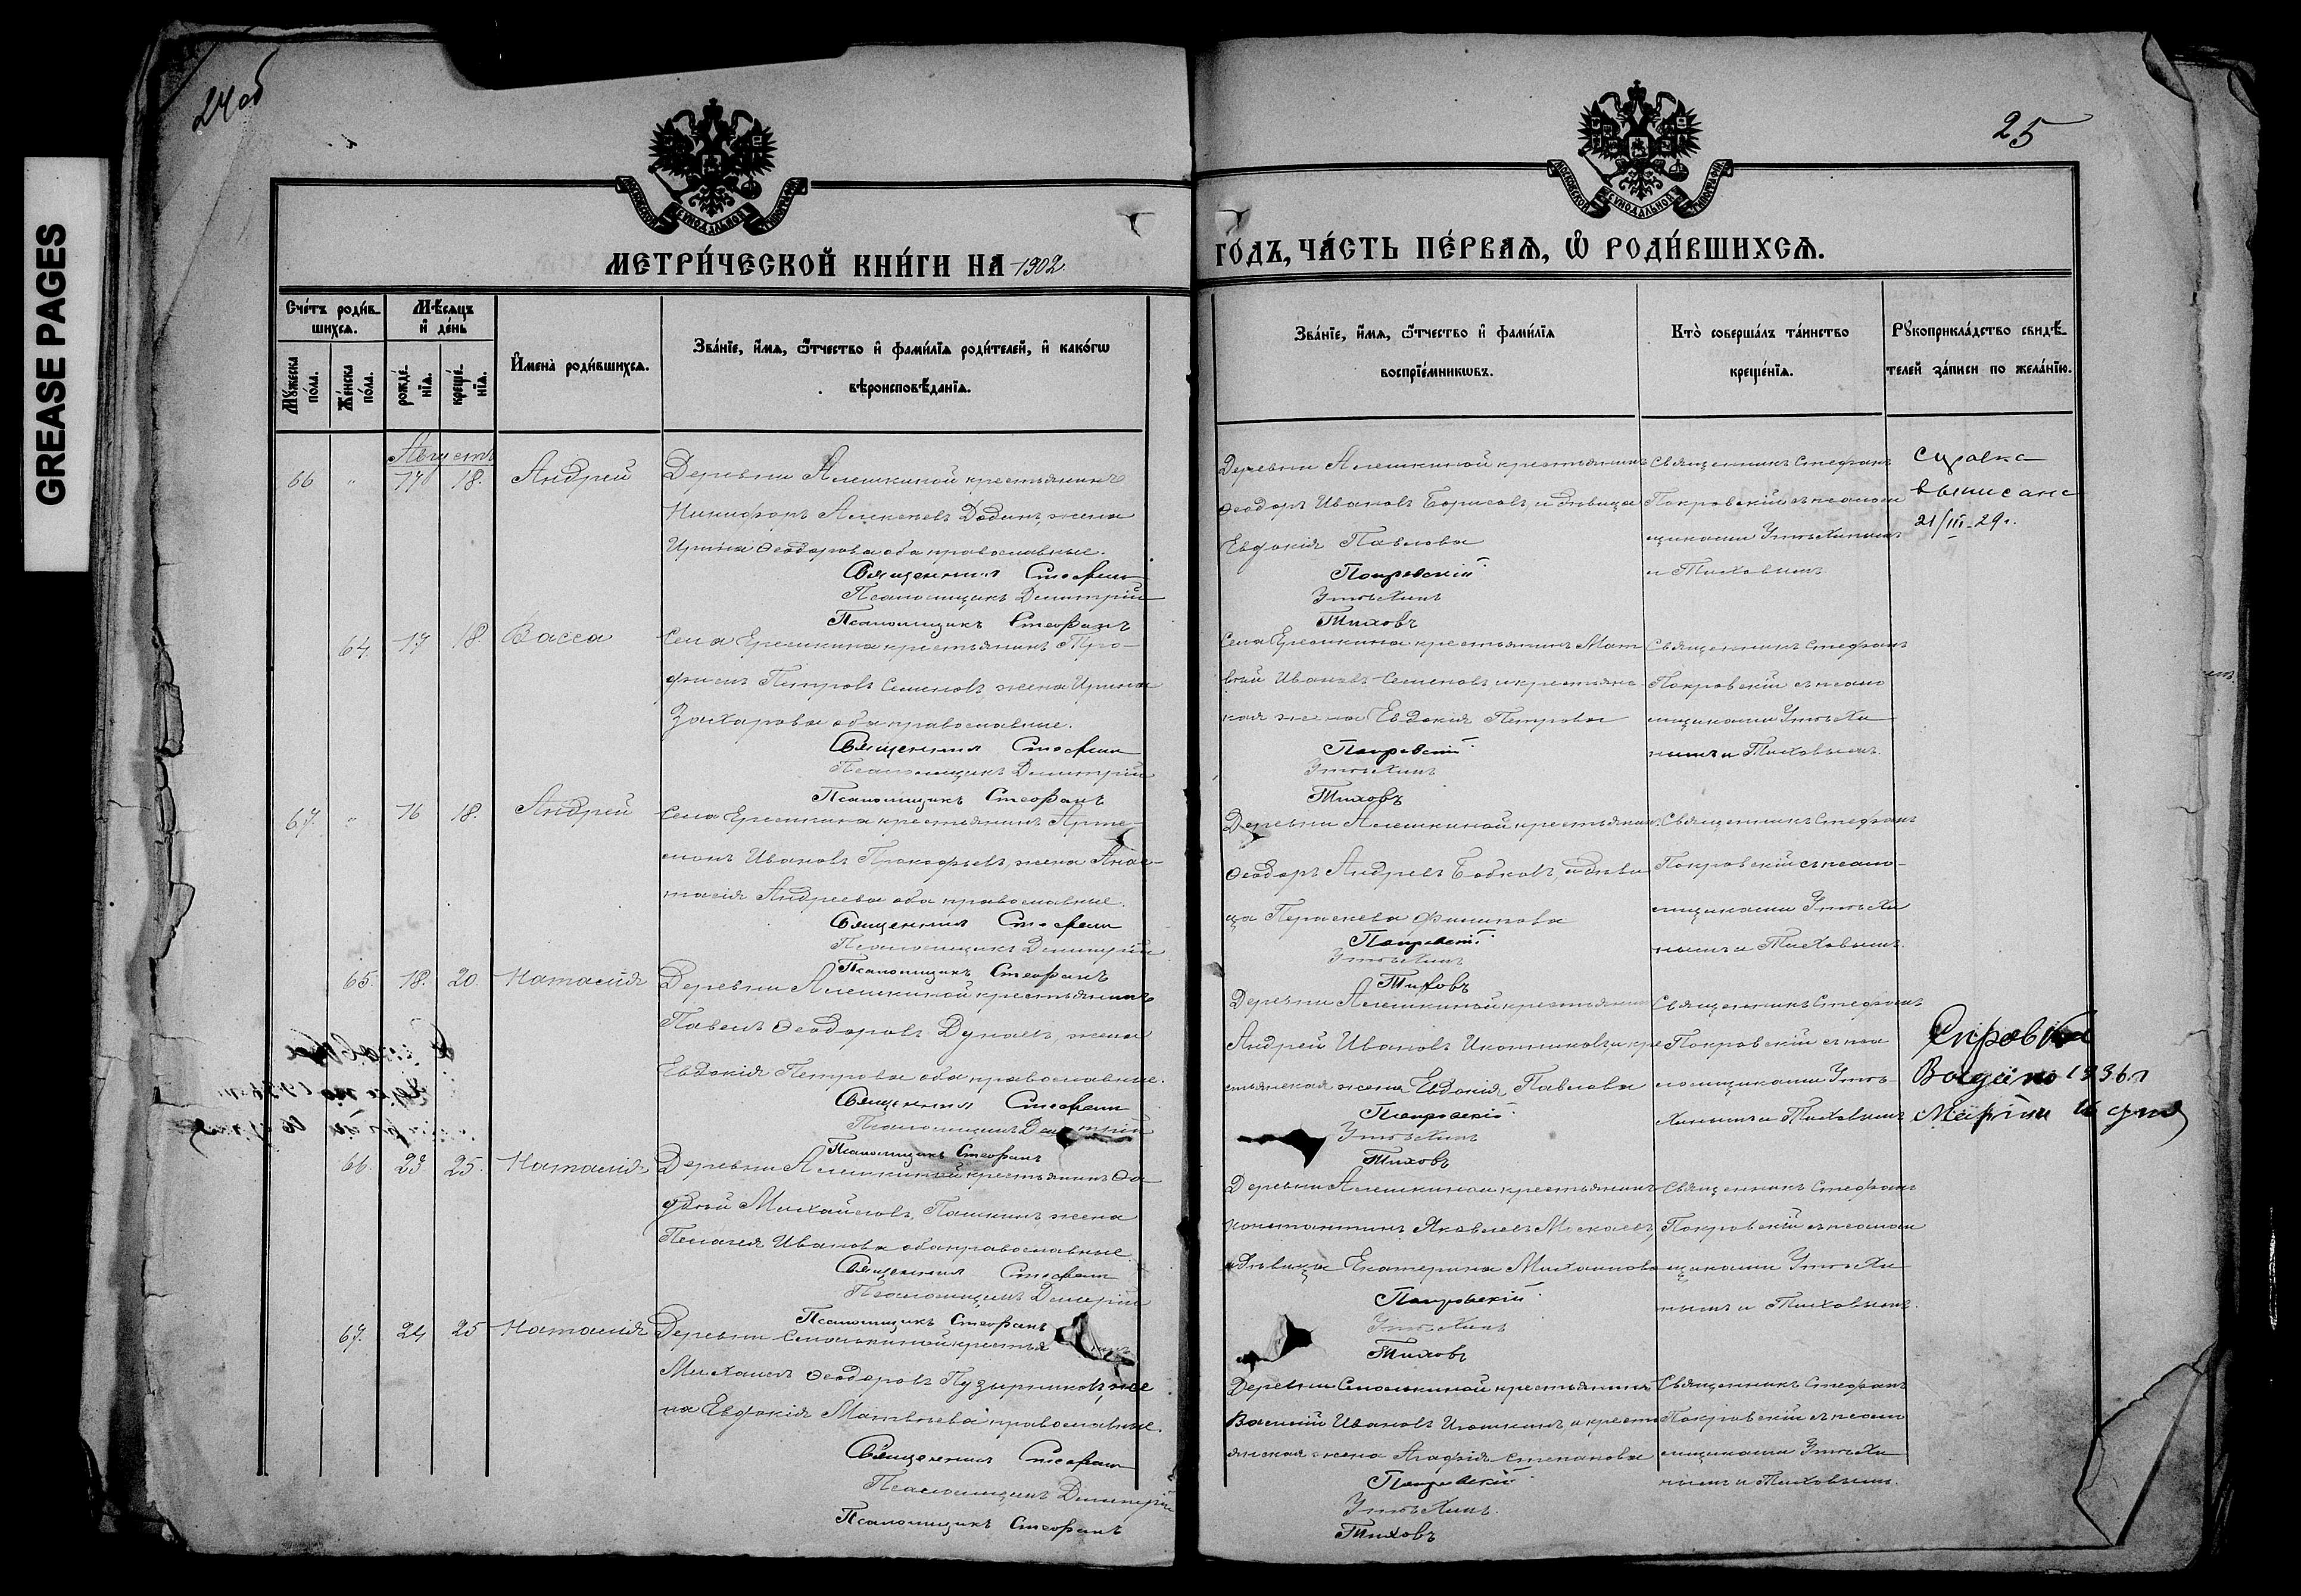 24 об
25
GREASE PAGES
МОСКОВСКОЙ СУНОДАЛЬНОЙ ТИПОГРАФІИ
МОСКОВСКОЙ СУНОДАЛЬНОЙ ТИПОГРАФІИ
МЕТРИ́ЧЕСКОЙ КНИ́ГИ НА 1902
ГО́ДЪ, ЧА́СТЬ ПЕ́РВАѦ, Ѡ҆ РОДИ́ВШИХСѦ.
Сче́тъ роди́в-
шихсѧ.
Мꙋ́жеска
по́ла.
Же́нска
по́ла.
Мѣ́сѧцъ
и҆ де́нь
рожде́-
нїѧ.
креще́-
нїѧ.
И҆мена̀ роди́вшихсѧ.
Зва́нїе, и҆́мѧ, ѻ҆́тчество и҆ фами́лїѧ роди́телей, и҆ како́гѡ
вѣроисповѣ́данїѧ.
Зва́нїе, и҆́мѧ, ѻ҆́тчество и҆ фами́лїѧ
воспрїе́мникѡвъ.
Кто̀ соверша́лъ та́инство
креще́нїѧ.
Рꙋкоприкла́дство свидѣ́-
телей за́писи по жела́нїю.
Августъ
66 " 17 18. Андрей
Деревни Алешкиной крестьянинъ
Никифоръ Алексѣевъ Дадинъ, жена
Ирина Ѳеодорова оба православные.
Священникъ Стефанъ
Псаломщикъ Димитрій
Псаломщикъ Стефанъ
Деревни Алешкиной крестьянинъ
Ѳеодоръ Ивановъ Борисовъ и дѣвица
Евдокія Павлова
Покровскій
Утѣхинъ
Тиховъ
Священникъ Стефанъ
Покровскій съ псалом
щиками Утѣхинымъ
и Тиховымъ
справка
выписана
21/III-29 г.
64. 17 18. Васса
Села Еремкина крестьянинъ Тро-
фимъ Петровъ Семеновъ жена Ирина
Захарова оба православные.
Священникъ Стефанъ
Псаломщикъ Димитрій
Псаломщикъ Стефанъ
Села Еремкина крестьянинъ Мат
вѣй Ивановъ Семеновъ и крестьянс
кая жена Евдокія Петрова
Покровскій
Утѣхинъ
Тиховъ
Священникъ Стефанъ
Покровскій съ псало
мщиками Утѣхи
нымъ и Тиховымъ.
67. " 16 18. Андрей
Села Еремкина крестьянинъ Арте-
монъ Ивановъ Прокофьевъ, жена Анас-
тасія Андреева оба православные.
Священникъ Стефанъ
Псаломщикъ Димитрій
Псаломщикъ Стефанъ
Деревни Алешкиной крестьянинъ
Ѳеодоръ Андреевъ Бобковъ, и дѣви
ца Параскева Филипова
Покровскій
Утѣхинъ
Тиховъ
Священникъ Стефанъ
Покровскій съ псало-
мщиками Утѣхи
нымъ и Тиховымъ.
65. 18. 20. Наталія
Деревни Алешкиной крестьянинъ
Павелъ Ѳеодоровъ Дунаевъ, жена
Евдокія Петрова оба православные.
Священникъ Стефанъ
Псаломщикъ Димитрій
Псаломщикъ Стефанъ
Деревни Алешкиной крестьянинъ
Андрей Ивановъ Иконниковъ и кре
стьянская жена Евдокія Павлова
Покровскій
Утѣхинъ
Тиховъ
Священникъ Стефанъ
Покровскій съ пса
ломщиками Утѣ-
хинымъ и Тиховымъ
Справка
1936 г
Марта 16 дня
66. 23 25. Наталія
Деревни Алешкиной крестьянинъ Ѳа-
дѣй Михайловъ Пашкинъ, жена
Пелагея Иванова оба православные
Священникъ Стефанъ
Псаломщикъ Димитрій
Псаломщикъ Стефанъ
Деревни Алешкиной крестьянинъ
Константинъ Яковлевъ Москалевъ,
и дѣвица Екатерина Михаилова
Покровскій
Утѣхинъ
Тиховъ
Священникъ Стефанъ
Покровскій съ псалом
щиками Утѣхи
нымъ и Тиховымъ.
67. 24 25 Наталія
Деревни Симонкиной крестья
Михаилъ Ѳеодоровъ Пузырниковъ, же
на Евдокія Матвѣева православные.
Священникъ Стефанъ
Псаломщикъ Димитрій
Псаломщикъ Стефанъ
Деревни Симонкиной крестьянинъ
Василій Ивановъ Игошкинъ и кресть
янская жена Агафія Степанова
Покровскій
Утѣхинъ
Тиховъ
Священникъ Стефанъ
Покровскій съ псало
мщиками Утѣхи
нымъ и Тиховымъ.